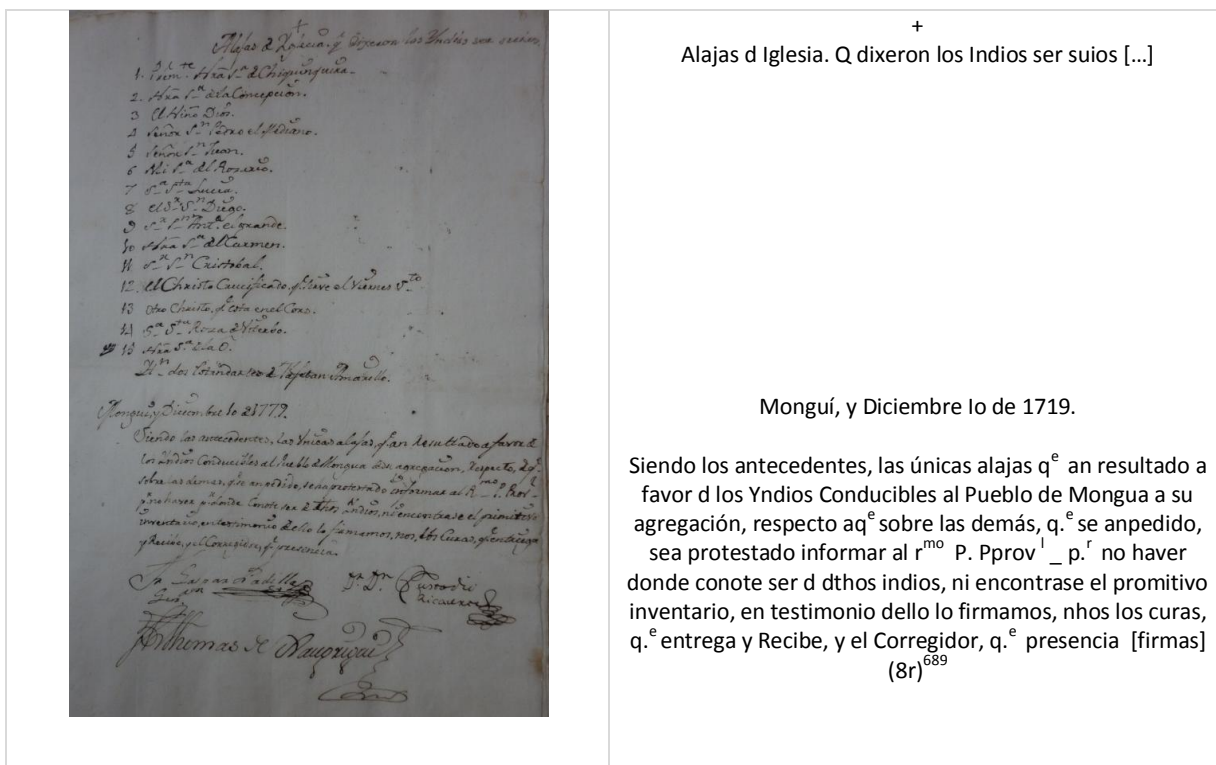 +
Alajas d Iglesia. q̃ dixeron los Yndios ser suios
1. Nra Sª d Chiquinquira.
2. Nra Sª d la Concepcion.
3 El Niño Dios.
4 Señor Sⁿ Pedro el Mediano.
5 Señor Sⁿ Juan.
6 Mi Sª del Rosario.
7 Sª Sta Lucia.
8 el Sʳ Sⁿ Diego.
9 Sʳ Sⁿ Antº el grande.
10 Nra Sª del Carmen.
11 Sʳ Sⁿ Cristobal.
12. El Christo Crucificado, q̃ sirve el Viernes Sto
13 Otro Christo, q̃ esta en el Coro.
14 Sª Sta Rosa d Viterbo.
15 Nra Sª d la O.
Ytn dos Estandartes d Tafetan Amarillo.
Mongui, y Diciembre 1o d 1779.
Siendo las antecedentes, las Unicas alajas, q̃ an Resultado a favor d
los Yndios Conducibles al Pueblo d Mongua a su agregacion, Respecto, a q̃
sobre las demas, q̃ se an pedido, se a protestado informar al Rmo P. Provl
pr no haver donde Conste ser d dhos Yndios, ni encontrarse el primitivo
inventario, en testimonio dello lo firmamos, nos, los Curas, q̃ entrega
y Recibe, y el Corregidor, q̃ presencia.
Fr. Gaspar Padilla
Dr. Dn. Custodio
Ricaurte
Thomas
+
Alajas d Iglesia. Q dixeron los Indios ser suios […]
Monguí, y Diciembre Io de 1719.
Siendo los antecedentes, las únicas alajas qᵉ an resultado a
favor d los Yndios Conducibles al Pueblo de Mongua a su
agregación, respecto aqᵉ sobre las demás, q.ᵉ se anpedido,
sea protestado informar al rᵐᵒ P. Pprov ˡ _ p.ʳ no haver
donde conote ser d dthos indios, ni encontrase el promitivo
inventario, en testimonio dello lo firmamos, nhos los curas,
q.ᵉ entrega y Recibe, y el Corregidor, q.ᵉ presencia [firmas]
(8r)⁶⁸⁹